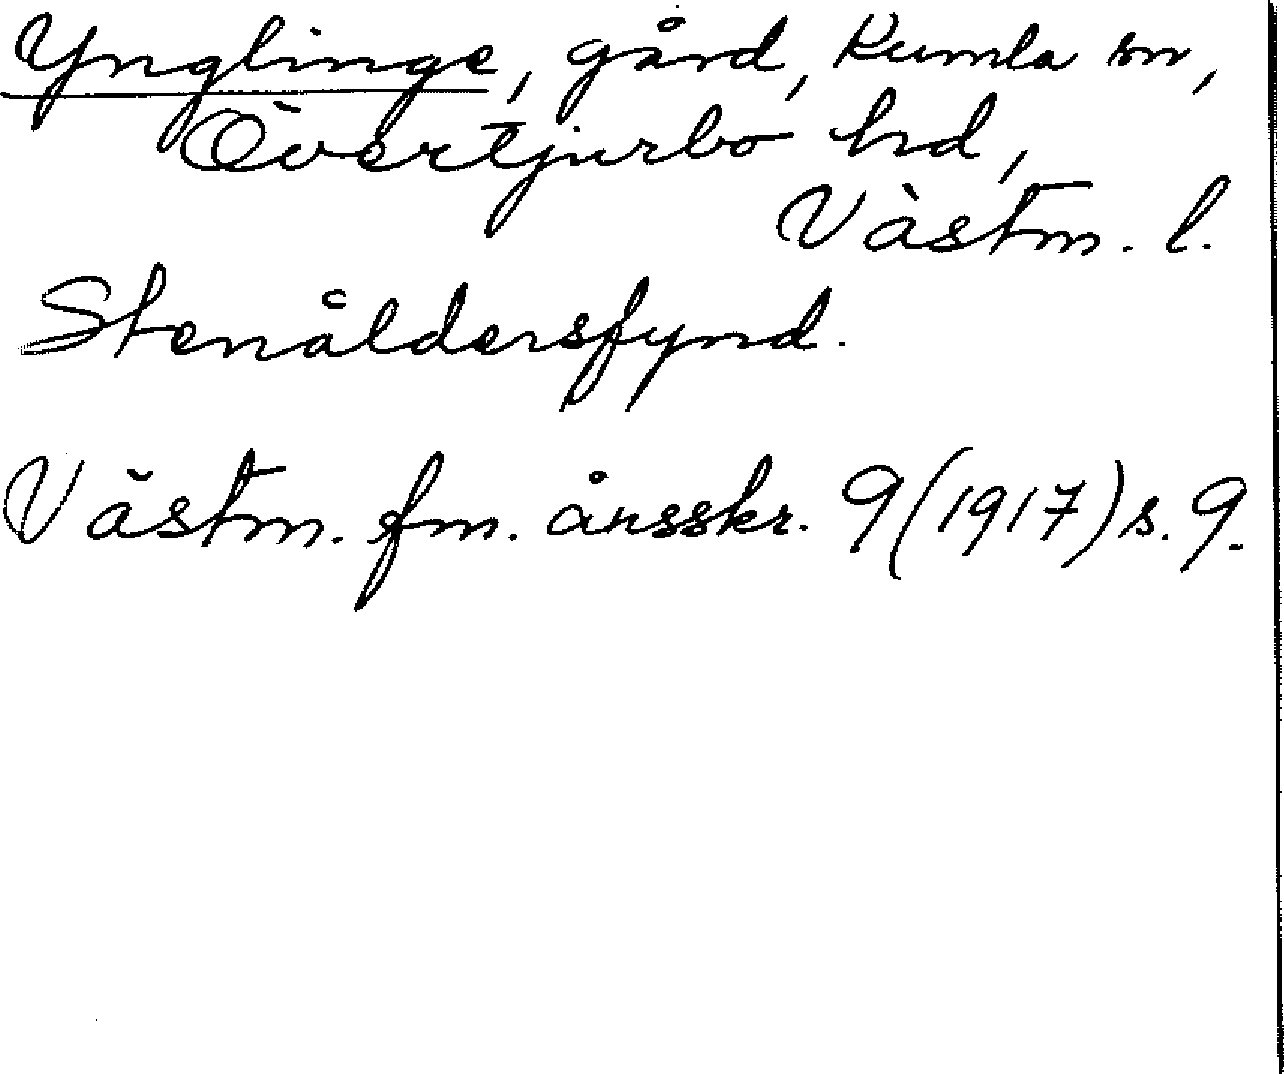 Ynglinge, gård, Kumla sn,
Övertjurbo hd,
Västm. l.
Stenåldersfynd.
Västm. fm. årsskr. 9 (1917) s. 9.